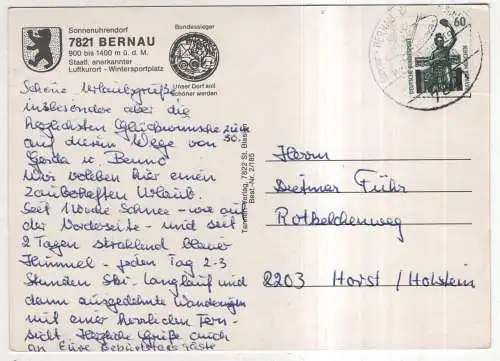 Sonnenuhrendorf
7821 BERNAU
900 bis 1400 m ü. d. M.
Staatl. anerkannter
Luftkurort - Wintersportplatz
Bundessieger
Unser Dorf soll
schöner werden
Schöne Urlaubsgrüße
insbesondere aber die
herzlichsten Glückwünsche zum
auf diesem Wege von 30.
Gerda u. Benno
Wir verleben hier einen
zauberhaften Urlaub.
Seit 1 Woche Schnee - wie auf
der Vorderseite - und seit
2 Tagen strahlend blauer
Himmel - jeden Tag 2-3
Stunden Ski-Langlauf und
dann ausgedehnte Wanderungen
mit einer herrlichen Fern-
sicht. Herzliche Grüße auch
an Eure Geburtstagsgäste
Verlag, 7822 St. Blasien
Best.-Nr. 2/165
BERNAU
60
DEUTSCHE BUNDESPOST
Herrn
Dietmar Führ
Rotkelchenweg
2203 Horst / Holstein